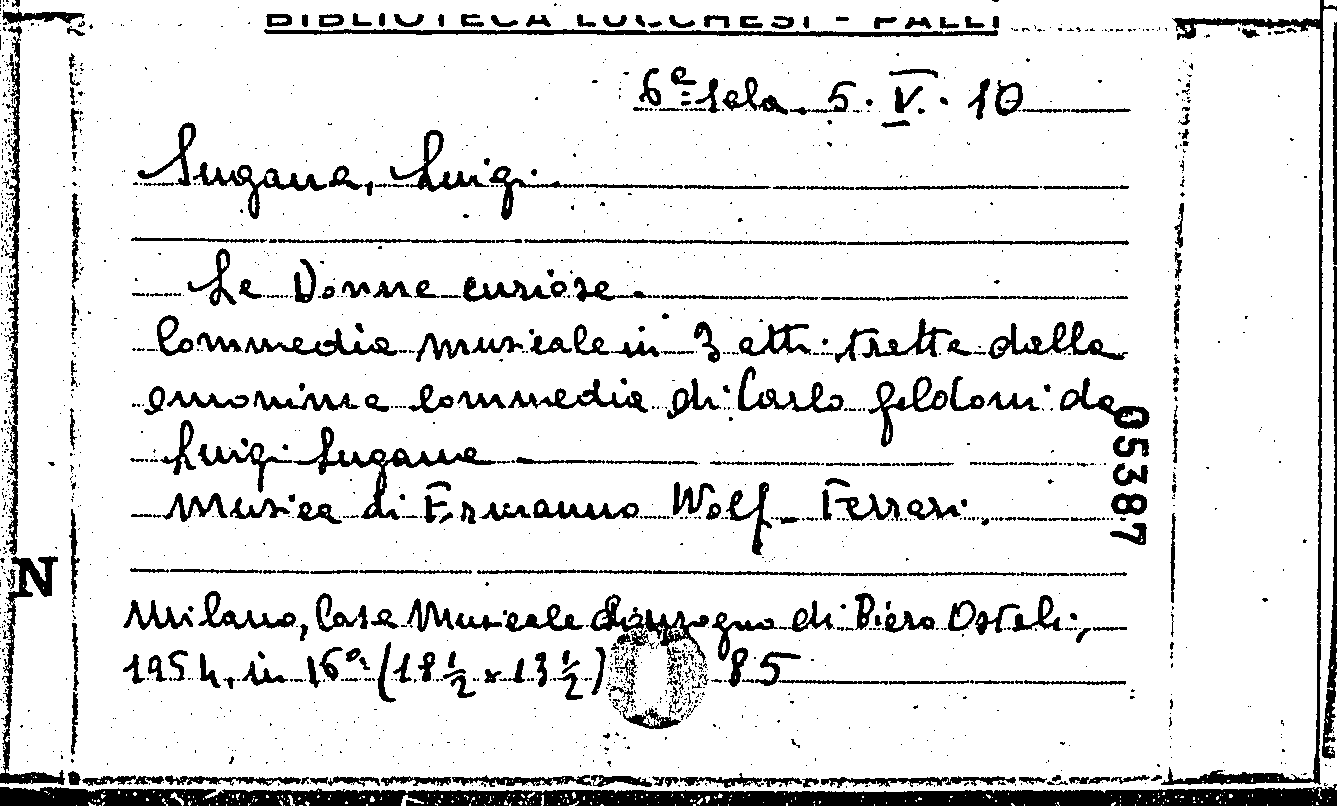 BIBLIOTECA LUCCHESI - PALLI
6ª Sala. 5. V. 10
Sugana, Luigi.
Le Donne curiose.
Commedia musicale in 3 atti tratta dalla
omonima commedia di Carlo Goldoni da
Luigi Sugana
Musica di Ermanno Wolf-Ferrari.
05387
N
Milano, Casa Musicale Sonzogno di Piero Ostali,
1954, in 16º (18 ½ x 13 ½) 85